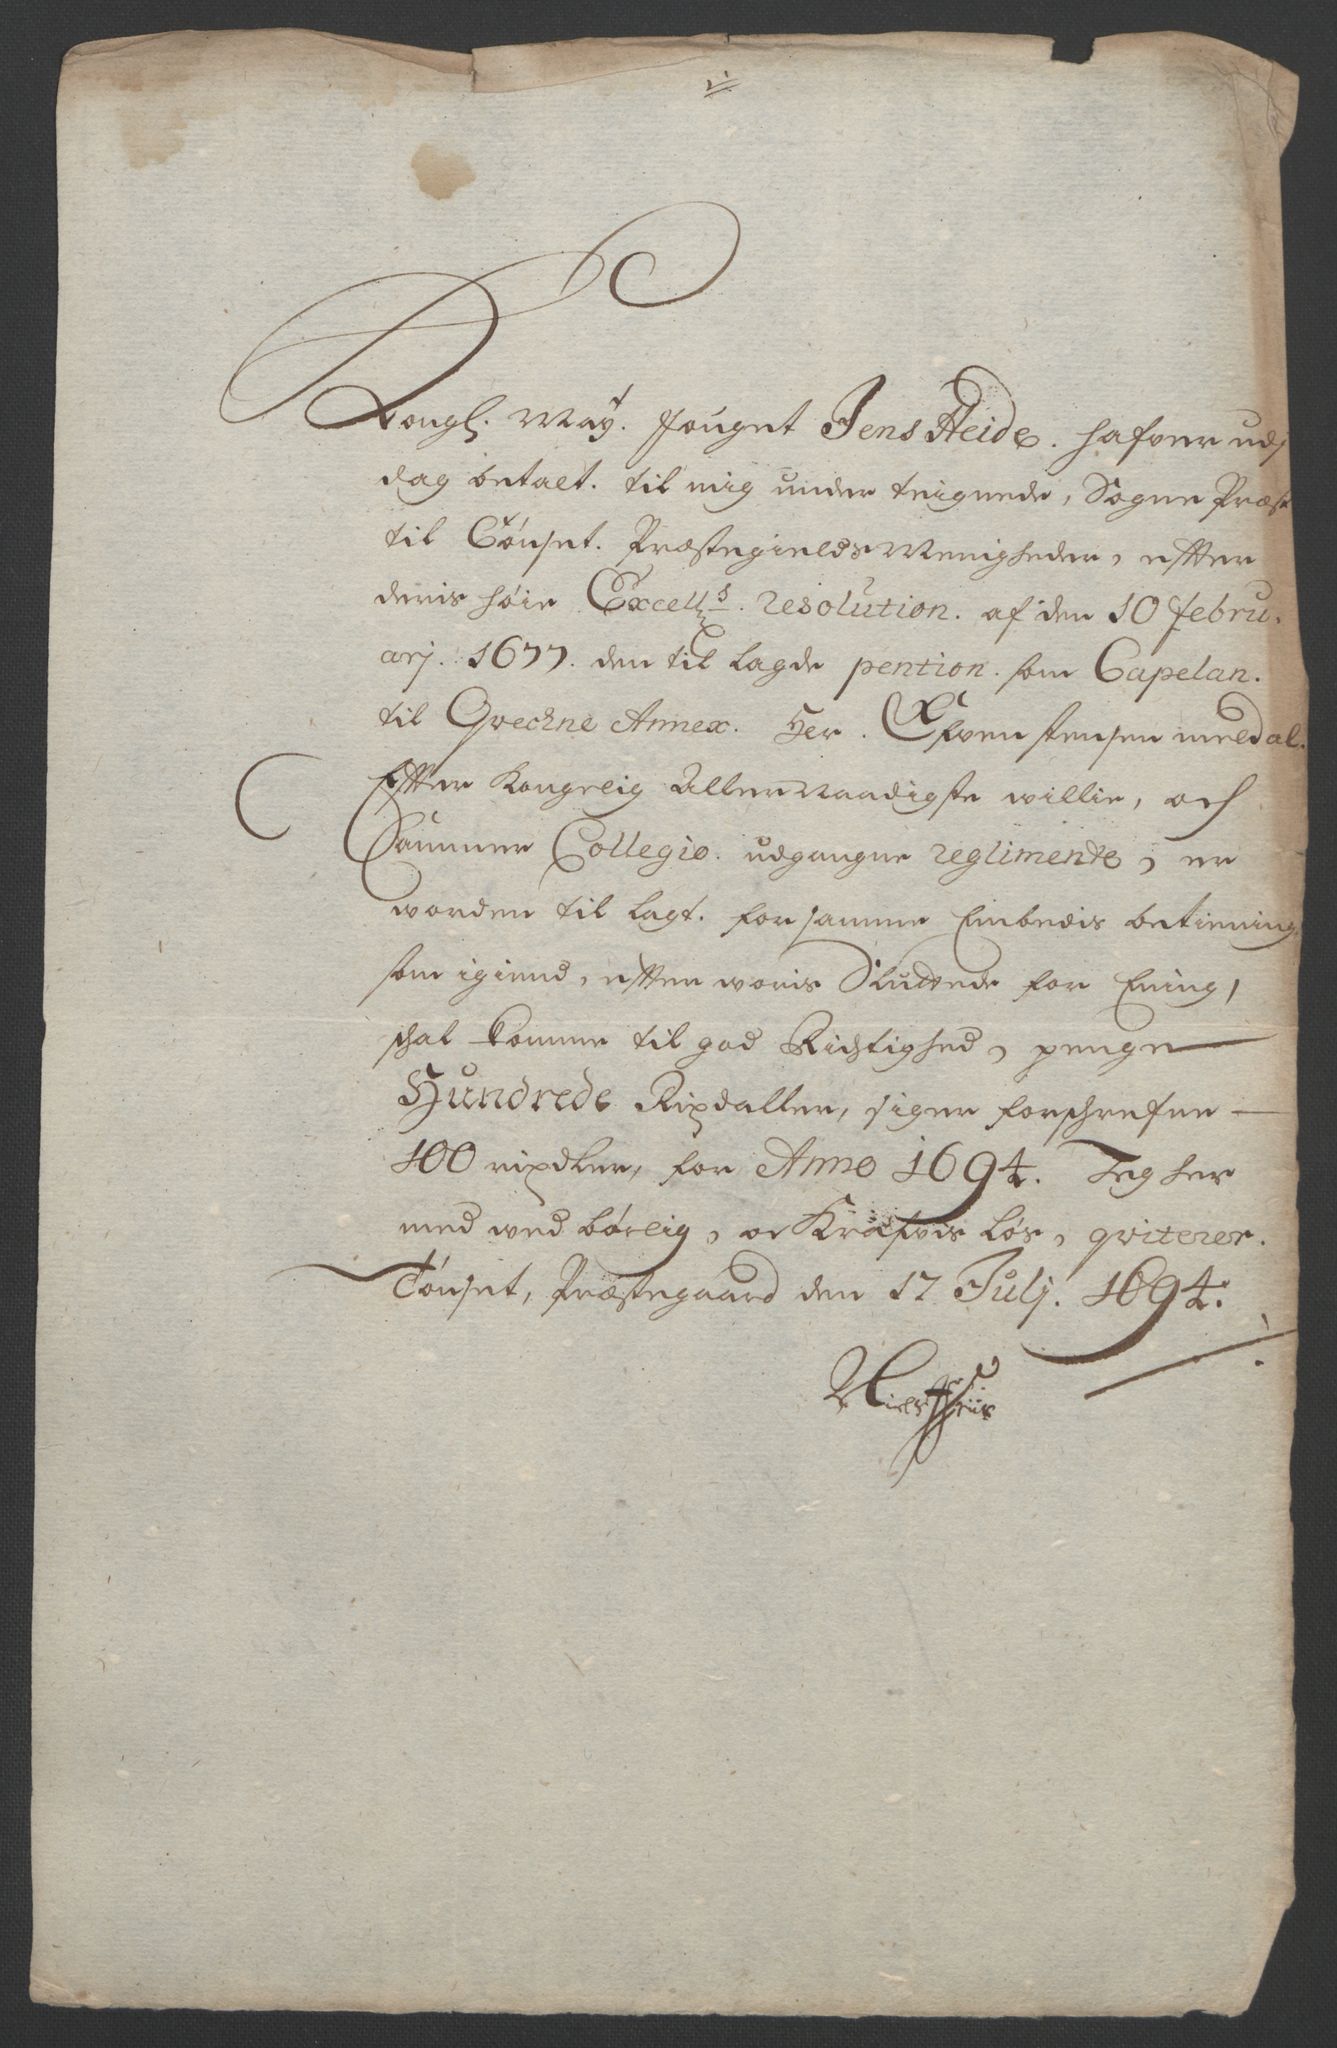 Kongl. May.t fouget Jens Heide. hafver udj
dag betalt. til mig under teignede, Sogne Præst
til Tönset. Præstegields Menigheder, efter
deris höie Excell.s resolution. af den 10 febru-
arj. 1677. den til lagde pention. som Capelan.
til Qvechne Annex. Her. Efven stensen meldal.
Efter Kongelig Allernaadigste willie, och
Cammer Collegio. udgangne reglimente, er
worden til lagt. for samme Embedis betiening,
som igiend, efter woris Sluttede for Ening,
schal komme til god Richtighed, penge
Hundrede Rixdaller, siger forschrefne
100 rixdler, for Anno 1694. Jeg her
med wed börlig, oc Krafvis lös, qviterer.
Tönset, Præstegaard den 17 Julj. 1694.
Niels